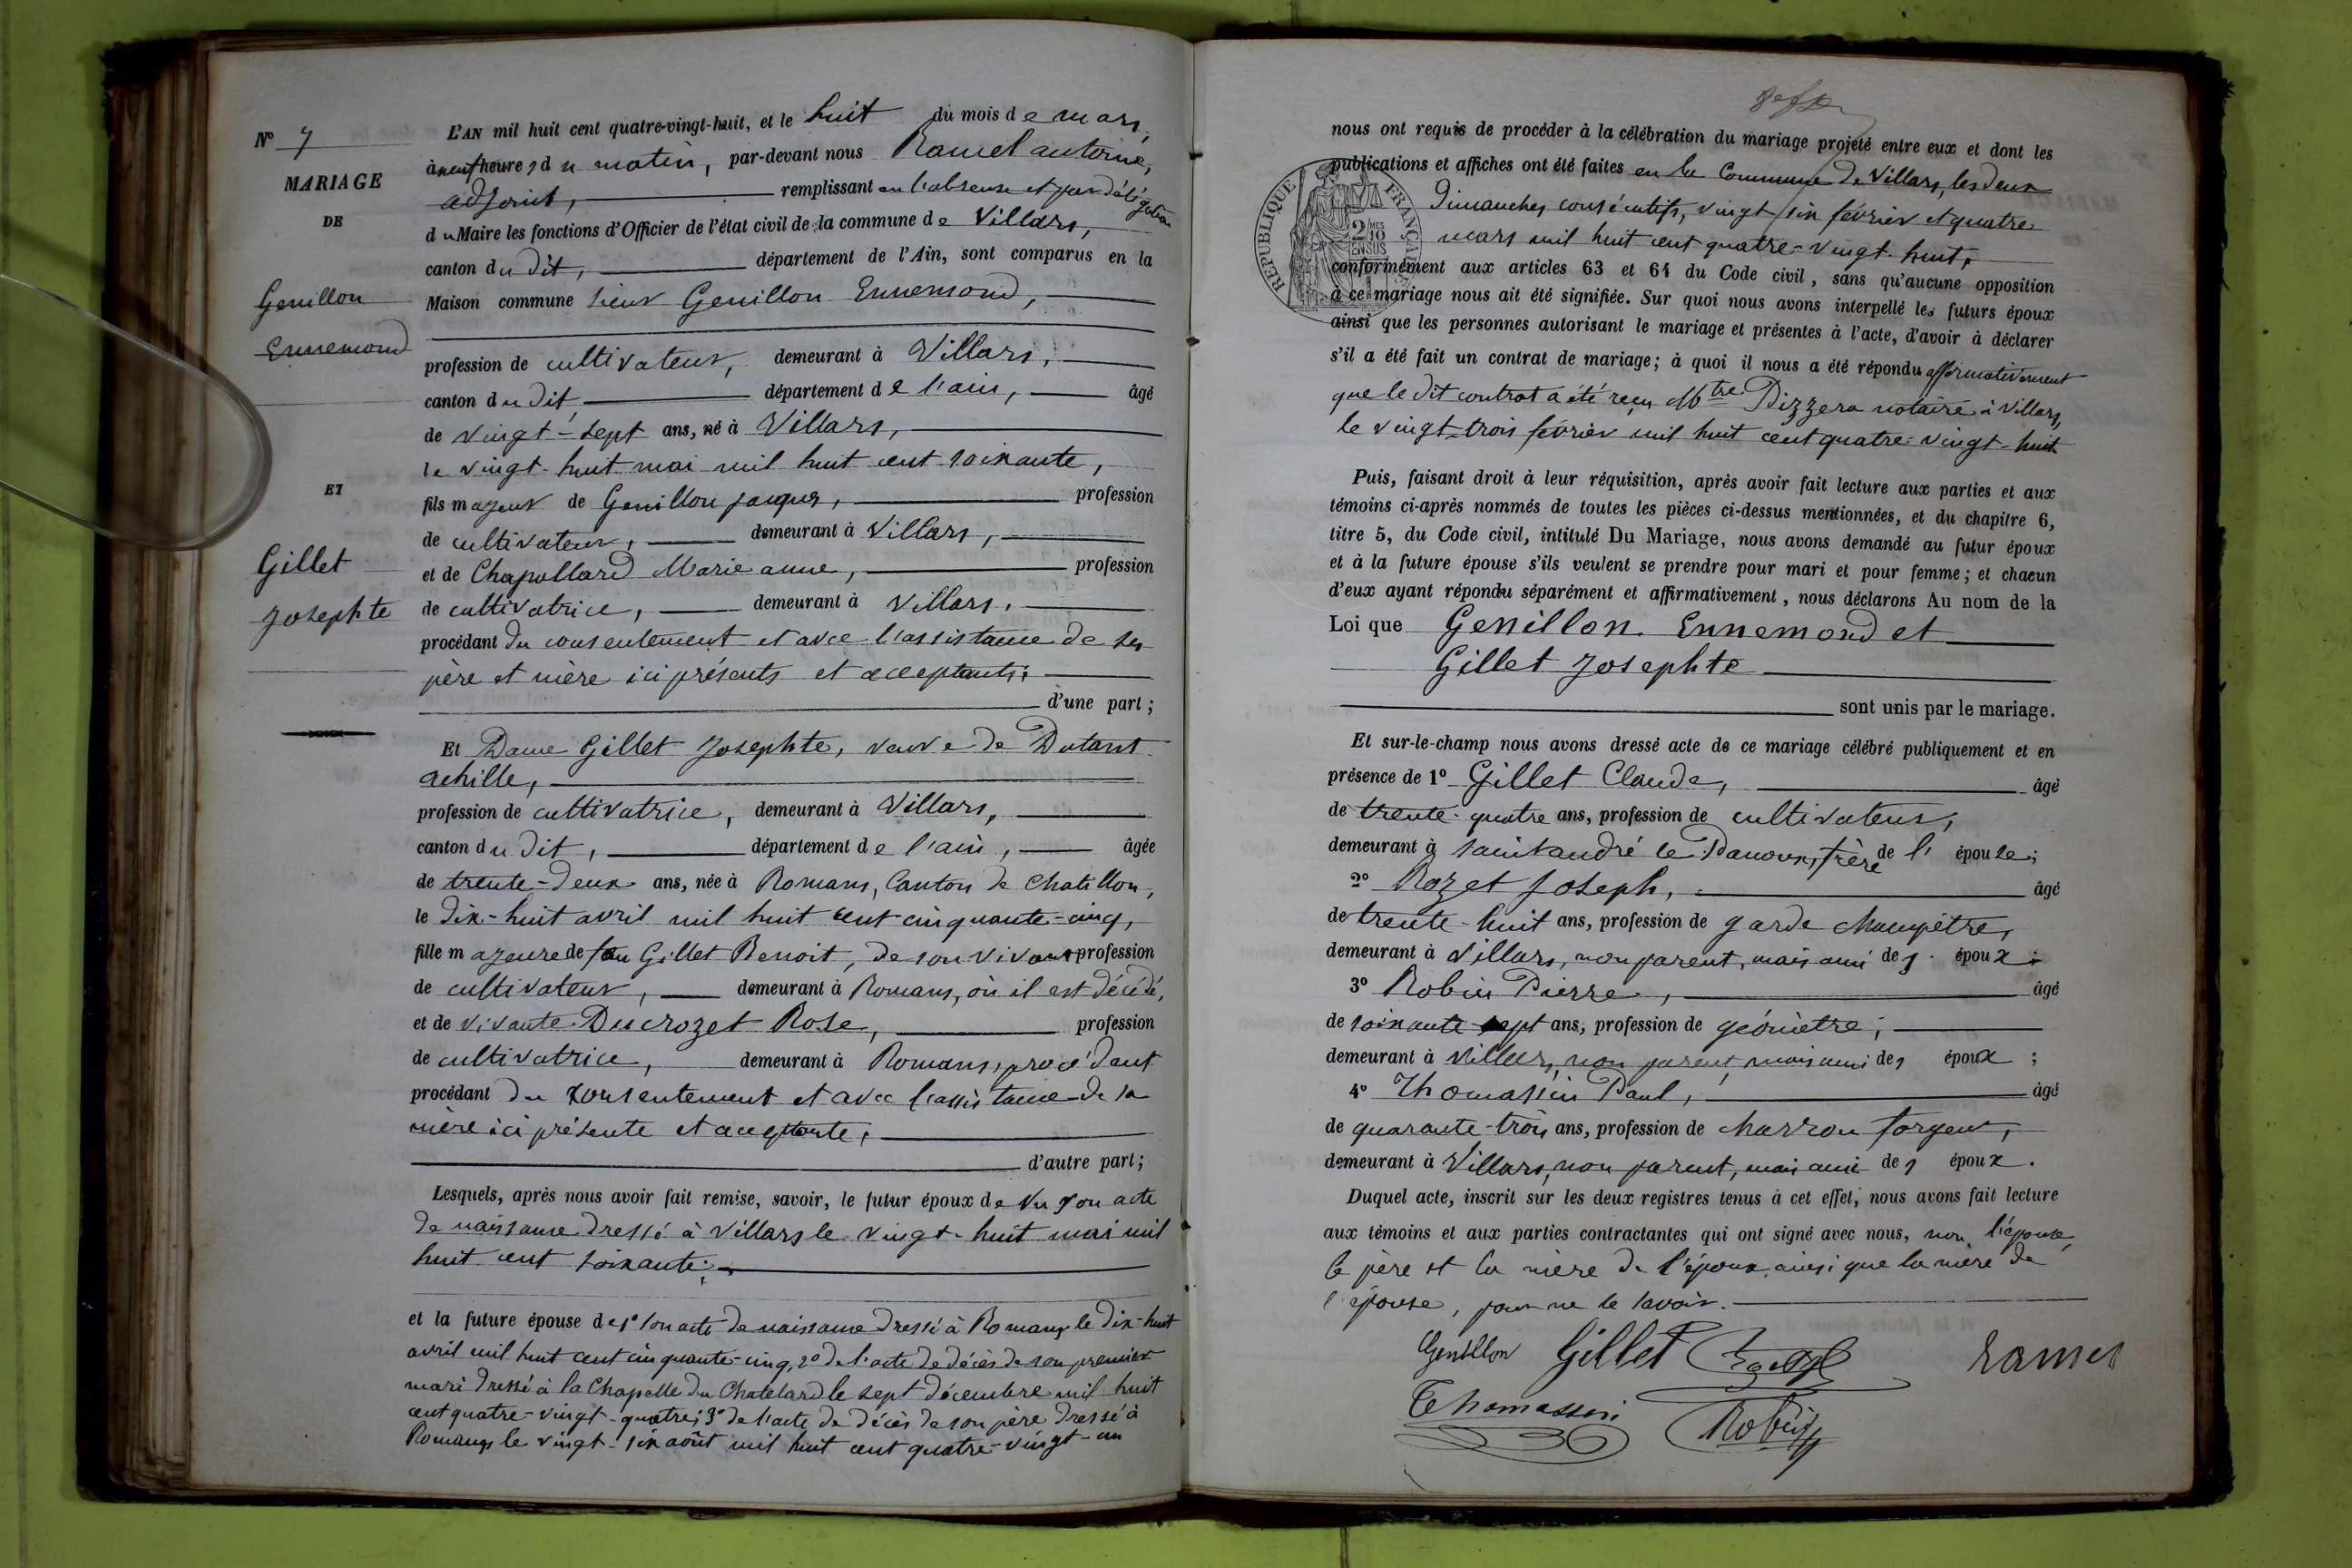 N° 7
MARIAGE
DE
Genillon
Ennemond
ET
Gillet
Josephte
L'AN mil huit cent quatre-vingt-huit, et le huit du mois de mars,
à neuf heures du matin, par-devant nous Ramel antoine,
adjoint, remplissant en l'absence et par délégation
du Maire les fonctions d'Officier de l'état civil de la commune de Villars,
canton du dit, département de l'Ain, sont comparus en la
Maison commune sieur Genillon Ennemond,
profession de cultivateur, demeurant à Villars,
canton du dit, département de l'ain, âgé
de vingt-sept ans, né à Villars,
le vingt-huit mai mil huit cent soixante,
fils majeur de Genillon jacques, profession
de cultivateur, demeurant à Villars,
et de Chapollard Marie anne, profession
de cultivatrice, demeurant à Villars,
procédant du consentement et avec l'assistance de ses
père et mère ici présents et acceptants;
d'une part;
Et Dame Gillet Josephte, veuve de Dutant
achille,
profession de cultivatrice, demeurant à Villars,
canton du dit, département de l'ain, âgée
de trente-deux ans, née à Romans, Canton de Chatillon,
le dix-huit avril mil huit cent cinquante-cinq,
fille majeure de feu Gillet Benoit, de son vivant profession
de cultivateur, demeurant à Romans, où il est décédé,
et de vivante Ducrozet Rose, profession
de cultivatrice, demeurant à Romans, procédant
procédant du consentement et avec l'assistance de sa
mère ici présente et acceptante,
d'autre part;
Lesquels, après nous avoir fait remise, savoir, le futur époux de Vu son acte
de naissance dressé à Villars le vingt-huit mai mil
huit cent soixante;
et la future épouse de 1° son acte de naissance dressé à Romans le dix-huit
avril mil huit cent cinquante-cinq, 2° de l'acte de décès de son premier
mari dressé à la Chapelle du Chatelard le sept décembre mil huit
cent quatre-vingt-quatre; 3° de l'acte de décès de son père dressé à
Romans le vingt-six août mil huit cent quatre-vingt-un
nous ont requis de procéder à la célébration du mariage projeté entre eux et dont les
publications et affiches ont été faites en la Commune de Villars, les deux
Dimanches consécutifs, vingt-six février et quatre
mars mil huit cent quatre-vingt-huit,
RÉPUBLIQUE FRANÇAISE
2 MES 10
EN SUS
conformément aux articles 63 et 64 du Code civil, sans qu'aucune opposition
à ce mariage nous ait été signifiée. Sur quoi nous avons interpellé les futurs époux
ainsi que les personnes autorisant le mariage et présentes à l'acte, d'avoir à déclarer
s'il a été fait un contrat de mariage; à quoi il nous a été répondu affirmativement
que le dit contrat a été reçu Mtre Pizzera notaire à Villars,
le vingt-trois février mil huit cent quatre-vingt-huit
Puis, faisant droit à leur réquisition, après avoir fait lecture aux parties et aux
témoins ci-après nommés de toutes les pièces ci-dessus mentionnées, et du chapitre 6,
titre 5, du Code civil, intitulé Du Mariage, nous avons demandé au futur époux
et à la future épouse s'ils veulent se prendre pour mari et pour femme; et chacun
d'eux ayant répondu séparément et affirmativement, nous déclarons Au nom de la
Loi que Genillon Ennemond et
Gillet Josephte
sont unis par le mariage.
Et sur-le-champ nous avons dressé acte de ce mariage célébré publiquement et en
présence de 1° Gillet Claude, âgé
de trente-quatre ans, profession de cultivateur,
demeurant à saint andré le Panoux, frère de l'épouse;
2° Rozet Joseph, âgé
de trente-huit ans, profession de garde champêtre,
demeurant à Villars, non parent, mais ami des époux;
3° Robin Pierre, âgé
de soixante-sept ans, profession de géomètre,
demeurant à Villars, non parent, mais ami des époux;
4° Thomassin Paul, âgé
de quarante-trois ans, profession de charron forgeur,
demeurant à Villars, non parent, mais ami des époux.
Duquel acte, inscrit sur les deux registres tenus à cet effet, nous avons fait lecture
aux témoins et aux parties contractantes qui ont signé avec nous, non l'épouse,
le père et la mère de l'époux, ainsi que la mère de
l'épouse, pour ne le savoir.
Genillon Gillet Ramel
Thomassin Robin